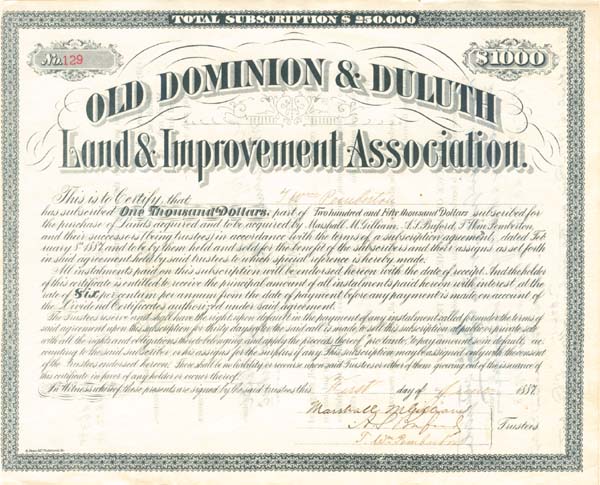 TOTAL SUBSCRIPTION $250.000
No. 129
$1000
OLD DOMINION & DULUTH
Land & Improvement Association.
This is to Certify, that T Wm Pemberton
has subscribed One Thousand Dollars, part of Two hundred and Fifty thousand Dollars subscribed for
the purchase of Lands acquired and to be acquired by Marshall McGilliam, A. L. Buford, T. Wm Pemberton
and their successors (been trustees) in accordance with the terms of a subscription agreement, dated
1887 and to be by them held and sold for the benefit of the subscribers and their assigns as set forth
in said agreement held by said trustees to which special reference is hereby made.
All instalments paid on this subscription will be endorsed hereon with the date of receipt. And the holder
of this certificate is entitled to receive the principal amount of all instalments paid hereon with interest at the
rate of Six per centum per annum from the date of payment before any payment is made on account
of the Dividend Certificates authorized under said agreement.
The trustees have the right upon default in the payment of any instalment called for under the terms of
said agreement upon this subscription for thirty days after the said call is made, to sell this subscription at public or private sale
with all the rights and obligations thereto belonging and apply the proceeds to
to the said subscriber, or his assigns for the surplus if any. This subscription may be assigned only with the consent
of the Trustees endorsed hereon. There shall be no liability or recourse upon said Trustees or either of them growing out of the issuance of
this certificate in favor of any holder or owner thereof.
In Witness whereof these presents are signed by the said trustees this First day of 1887.
Marshall McGilliam
A. L. Buford
Trustees
T. Wm Pemberton